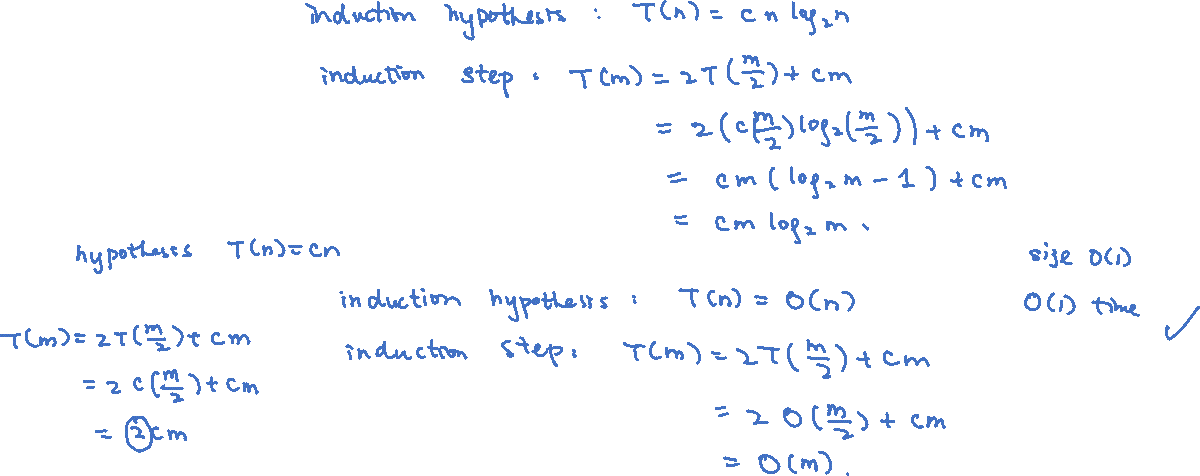 induction hypothesis : T(n) = c n log₂n
induction step : T(m) = 2T(m/2) + cm
= 2(c(m/2)log₂(m/2)) + cm
= cm(log₂m - 1) + cm
= cm log₂m .
hypothesis T(n)=cn
T(m) = 2T(m/2) + cm
= 2 c(m/2) + cm
= 2cm
induction hypothesis : T(n) = O(n)
induction step : T(m) = 2T(m/2) + cm
= 2 O(m/2) + cm
= O(m).
size O(1)
O(1) time ✓